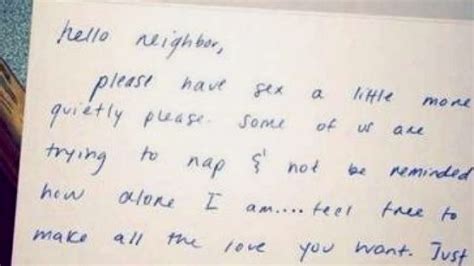 hello neighbor,
please have sex a little more
quietly please. some of us are
trying to nap & not be reminded
how alone I am.... feel free to
make all the love you want. Just